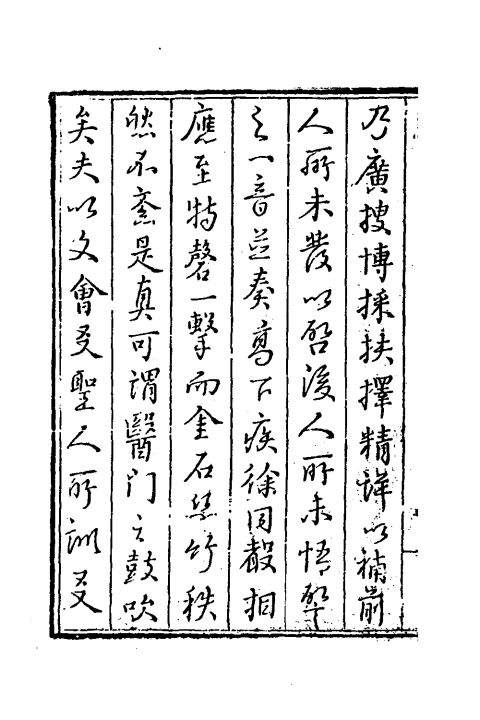 乃廣搜博採抉擇精詳以補前
人所未發以啓後人所未悟譬
之八音並奏高下疾徐同聲相
應至特磬一擊而金石絲竹秩
然不紊是真可謂醫門之鼓吹
矣夫以文會友聖人所訓友